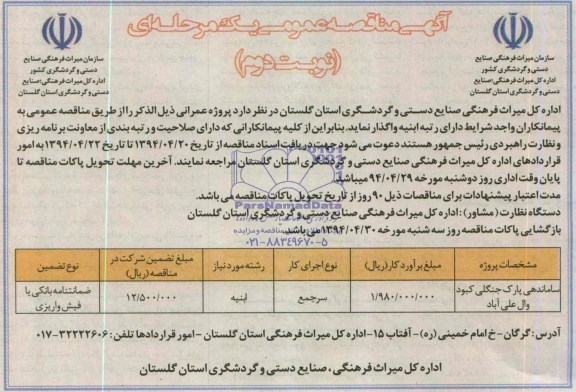 آگهی مناقصه عمومی یک مرحله‌ای
(نوبت دوم)
سازمان میراث فرهنگی صنایع
دستی و گردشگری کشور
اداره کل میراث فرهنگی، صنایع
دستی و گردشگری استان گلستان
سازمان میراث فرهنگی صنایع
دستی و گردشگری کشور
اداره کل میراث فرهنگی، صنایع
دستی و گردشگری استان گلستان
اداره کل میراث فرهنگی صنایع دستی و گردشگری استان گلستان در نظر دارد پروژه عمرانی ذیل الذکر را از طریق مناقصه عمومی به
پیمانکاران واجد شرایط دارای رتبه ابنیه واگذار نماید. بنابراین از کلیه پیمانکارانی که دارای صلاحیت و رتبه بندی از معاونت برنامه ریزی
و نظارت راهبردی رئیس جمهور هستند دعوت می شود جهت دریافت اسناد مناقصه از تاریخ ۱۳۹۴/۰۴/۲۰ تا تاریخ ۱۳۹۴/۰۴/۲۲ به امور
قراردادهای اداره کل میراث فرهنگی صنایع دستی و گردشگری استان گلستان مراجعه نمایند. آخرین مهلت تحویل پاکات مناقصه تا
پایان وقت اداری روز دوشنبه مورخه ۹۴/۰۴/۲۹ میباشد.
مدت اعتبار پیشنهادات برای مناقصات ذیل ۹۰ روز از تاریخ تحویل پاکات مناقصه می باشد.
دستگاه نظارت (مشاور) : اداره کل میراث فرهنگی صنایع دستی و گردشگری استان گلستان
بازگشایی پاکات مناقصه روز سه شنبه مورخه ۱۳۹۴/۰۴/۳۰ می باشد.
ParsNamadData
۰۲۱-۸۸۳۴۹۶۷۰-۵
مشخصات پروژه	مبلغ برآورد کار (ریال)	نوع اجرای کار	رشته مورد نیاز	مبلغ تضمین شرکت در مناقصه (ریال)	نوع تضمین
ساماندهی پارک جنگلی کبود وال علی آباد	۱/۹۸۰/۰۰۰/۰۰۰	سرجمع	ابنیه	۱۲/۵۰۰/۰۰۰	ضمانتنامه بانکی یا فیش واریزی
آدرس: گرگان - خ امام خمینی (ره) - آفتاب ۱۵ - اداره کل میراث فرهنگی استان گلستان - امور قراردادها تلفن: ۳۲۲۲۲۶۰۶-۰۱۷
اداره کل میراث فرهنگی، صنایع دستی و گردشگری استان گلستان